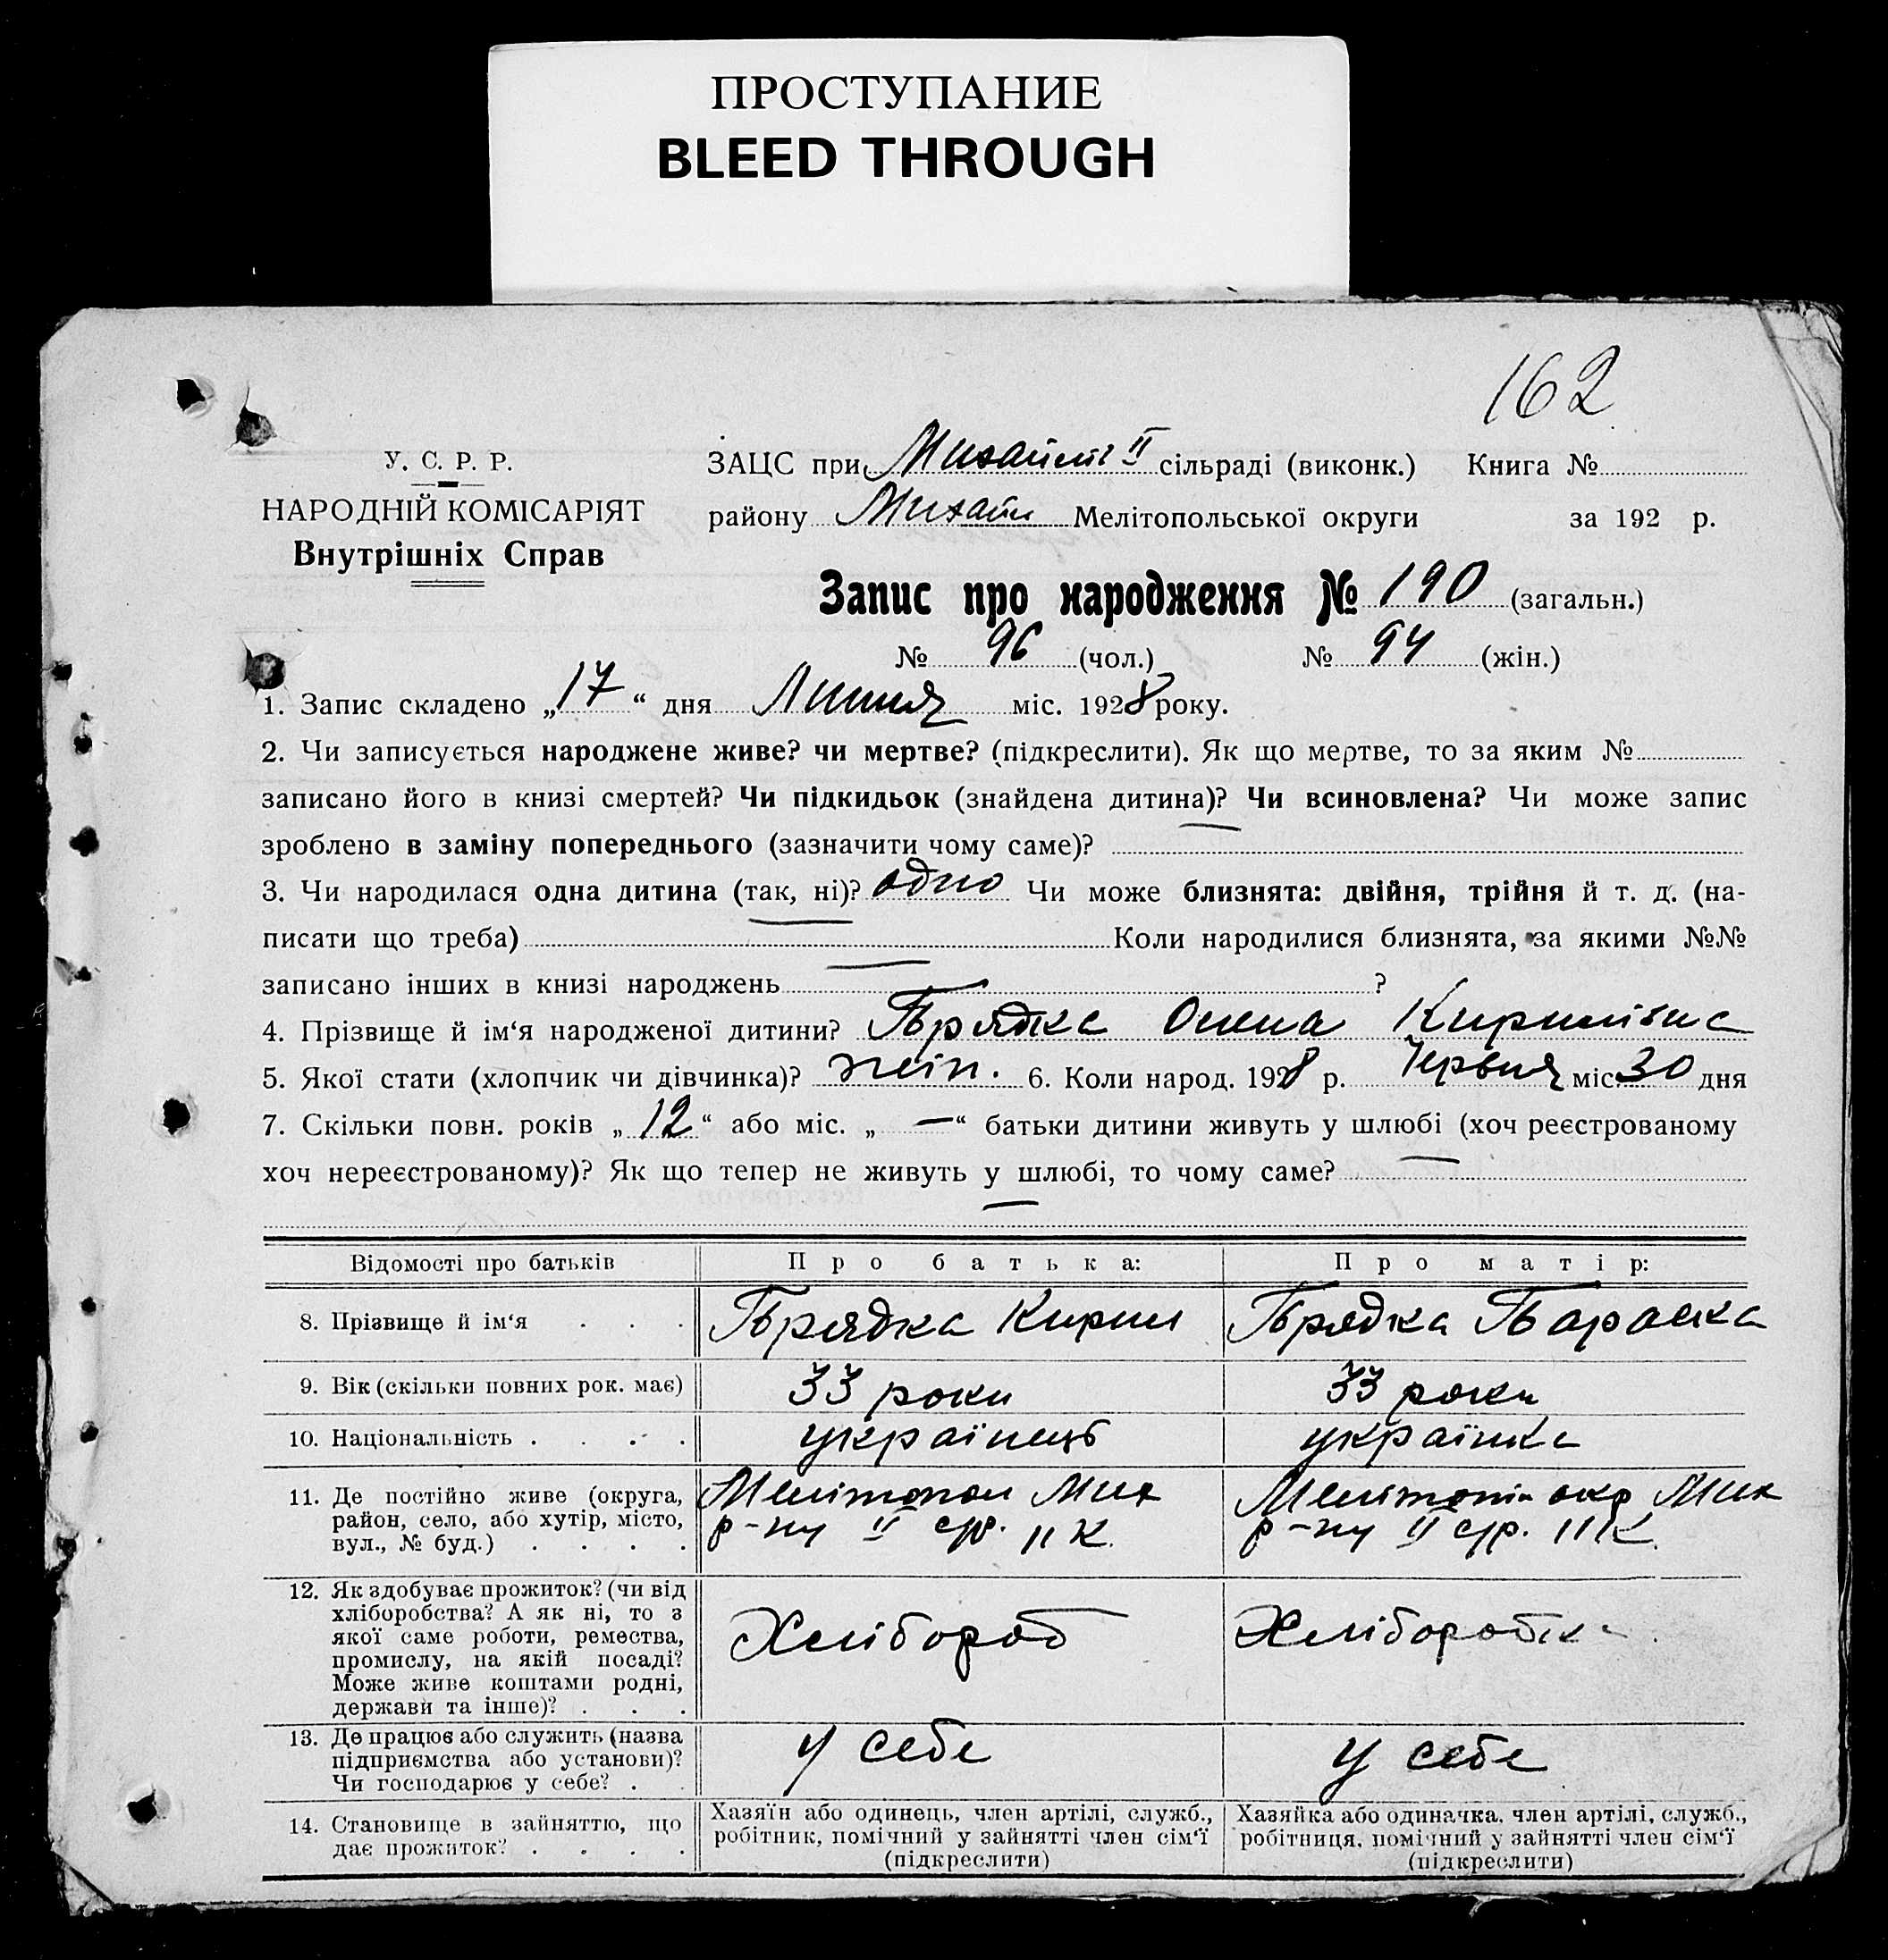 ПРОСТУПАНИЕ
BLEED THROUGH
162
У. С. Р. Р.
НАРОДНІЙ КОМІСАРІЯТ
Внутрішніх Справ
ЗАЦС при II сільраді (виконк.) Книга №
району Михайл Мелітопольської округи за 192 р.
Запис про народження № 190 (загальн.)
№ 96 (чол.) № 94 (жін.)
1. Запис складено „17“ дня Липня міс. 1928 року.
2. Чи записується народжене живе? чи мертве? (підкреслити). Як що мертве, то за яким №
записано його в книзі смертей? Чи підкидьок (знайдена дитина)? Чи всиновлена? Чи може запис
зроблено в заміну попереднього (зазначити чому саме)? —
3. Чи народилася одна дитина (так, ні)? одно Чи може близнята: двійня, трійня й т. д. (на-
писати що треба) — Коли народилися близнята, за якими №№
записано інших в книзі народжень — ?
4. Прізвище й ім‘я народженої дитини? Брядка Олена Кирилівна
5. Якої стати (хлопчик чи дівчинка)? жін. 6. Коли народ. 1928 р. Червня міс. 30 дня
7. Скільки повн. років „12“ або міс. „—“ батьки дитини живуть у шлюбі (хоч реєстрованому
хоч нереєстрованому)? Як що тепер не живуть у шлюбі, то чому саме? —
—
Відомості про батьків Про батька: Про матір:
8. Прізвище й ім‘я . . . Брядка Кирил Брядка Параска
9. Вік (скільки повних рок. має) 33 роки 33 роки
10. Національність . . . . українець українка
11. Де постійно живе (округа, район, село, або хутір, місто, вул., № буд.) . . . . Мелітопол Мих р-ну II с/р. II К. Мелітопіл окр Мих р-ну II с/р. III К.
12. Як здобуває прожиток? (чи від хліборобства? А як ні, то з якої саме роботи, ремества, промислу, на якій посаді? Може живе коштами родні, держави та інше)? . . . Хлібороб Хліборобка
13. Де працює або служить (назва підприємства або установи)? Чи господарює у себе? . . у себе у себе
14. Становище в зайняттю, що дає прожиток? . . . . Хазяїн або одинець, член артілі, служб., робітник, помічний у зайнятті член сім‘ї (підкреслити) Хазяйка або одиначка, член артілі, служб., робітниця, помічний у зайнятті член сім‘ї (підкреслити)